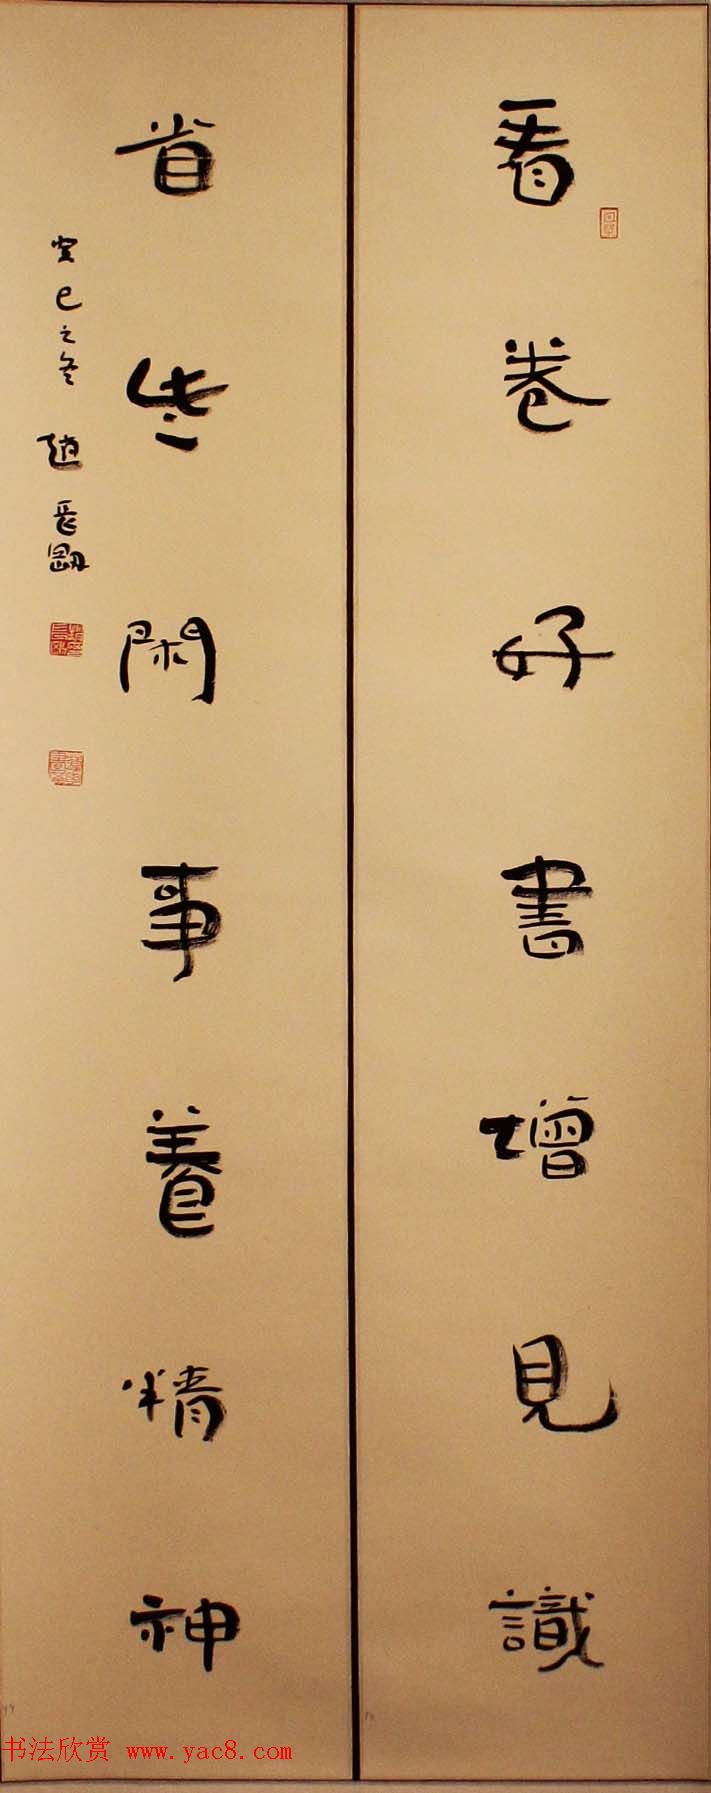 看卷好書增見識
省些閑事養精神
癸巳之冬 趙長剛
书法欣赏 www.yac8.com